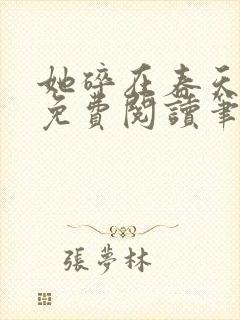 她碎在春天
免費閱讀筆
張夢林